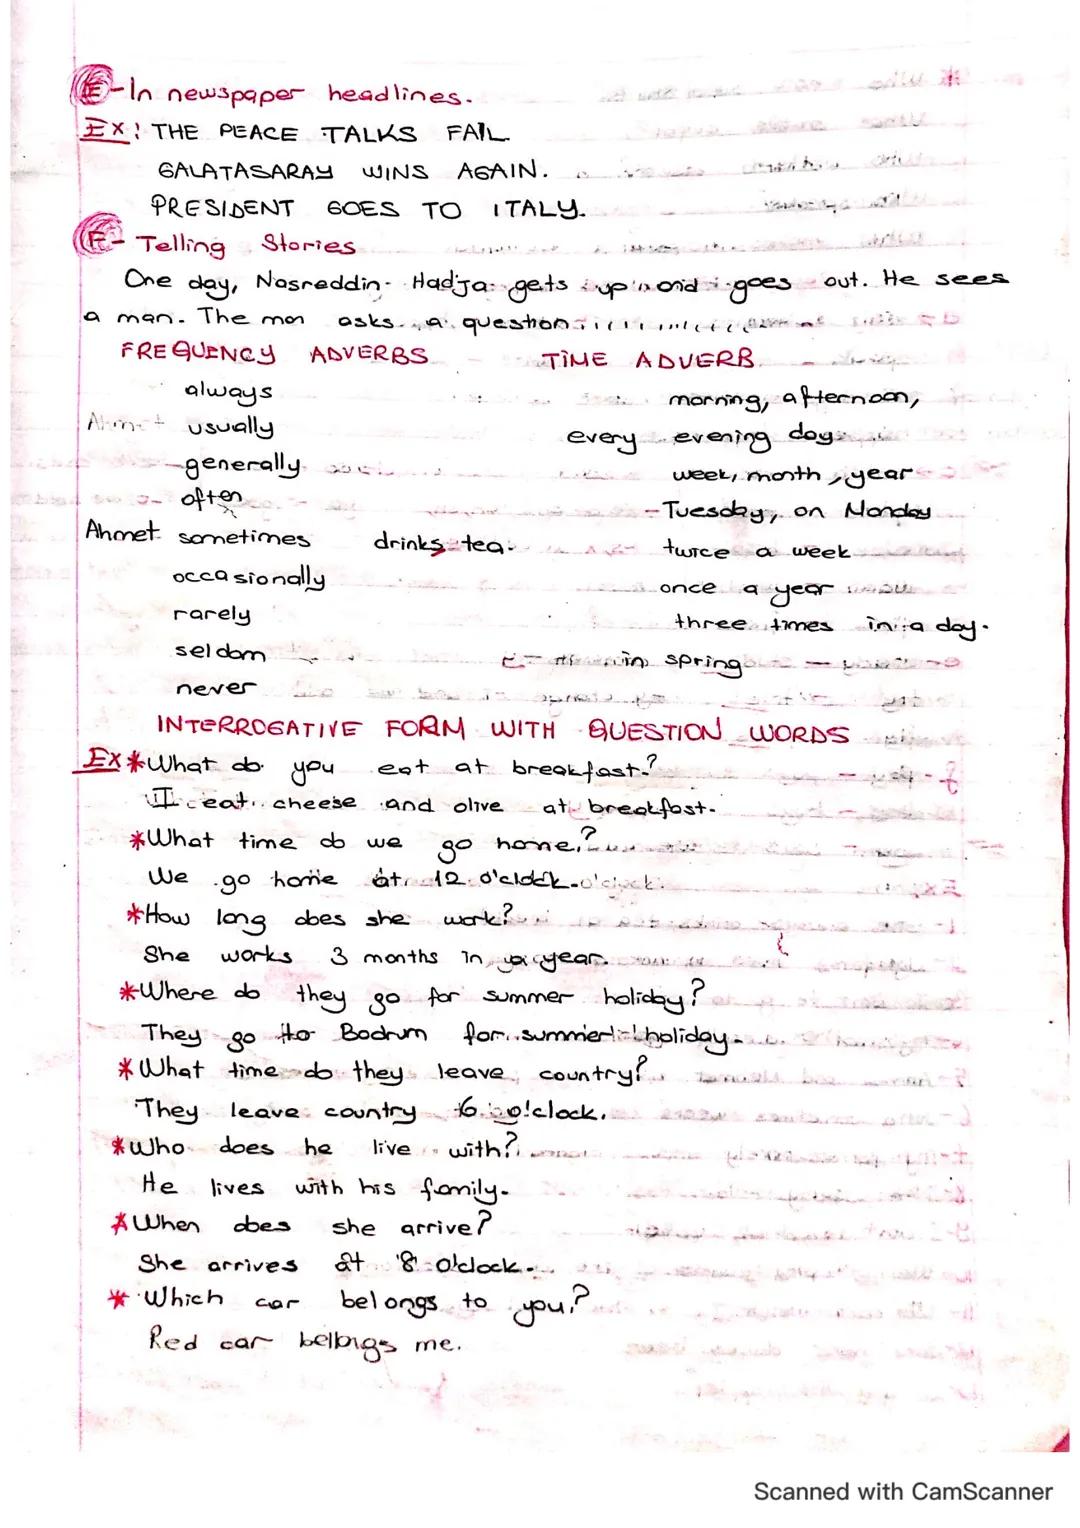 E-In newspaper headlines.
EX: THE PEACE TALKS FAIL
GALATASARAY WINS AGAIN.
PRESIDENT GOES TO ITALY.
F- Telling Stories
One day, Nasreddin Hadja gets up and goes out. He sees
a man. The man asks a question
FREQUENCY ADVERBS TIME ADVERB
always morning, afternoon,
usually every evening day
generally week, month, year
often Tuesday, on Monday
Ahmet sometimes drinks tea. twice a week
occasionally once a year
rarely three times in a day.
seldom in spring
never
INTERROGATIVE FORM WITH QUESTION WORDS
EX *What do you eat at breakfast?
I eat cheese and olive at breakfast.
*What time do we go home?
We go home at 12 o'clock.
*How long does she work?
She works 3 months in a year.
*Where do they go for summer holiday?
They go to Bodrum for summer holiday.
*What time do they leave country?
They leave country 6 o'clock.
*Who does he live with?
He lives with his family.
*When does she arrive?
She arrives at 8 o'clock.
*Which car belongs to you?
Red car belongs me.
Scanned with CamScanner